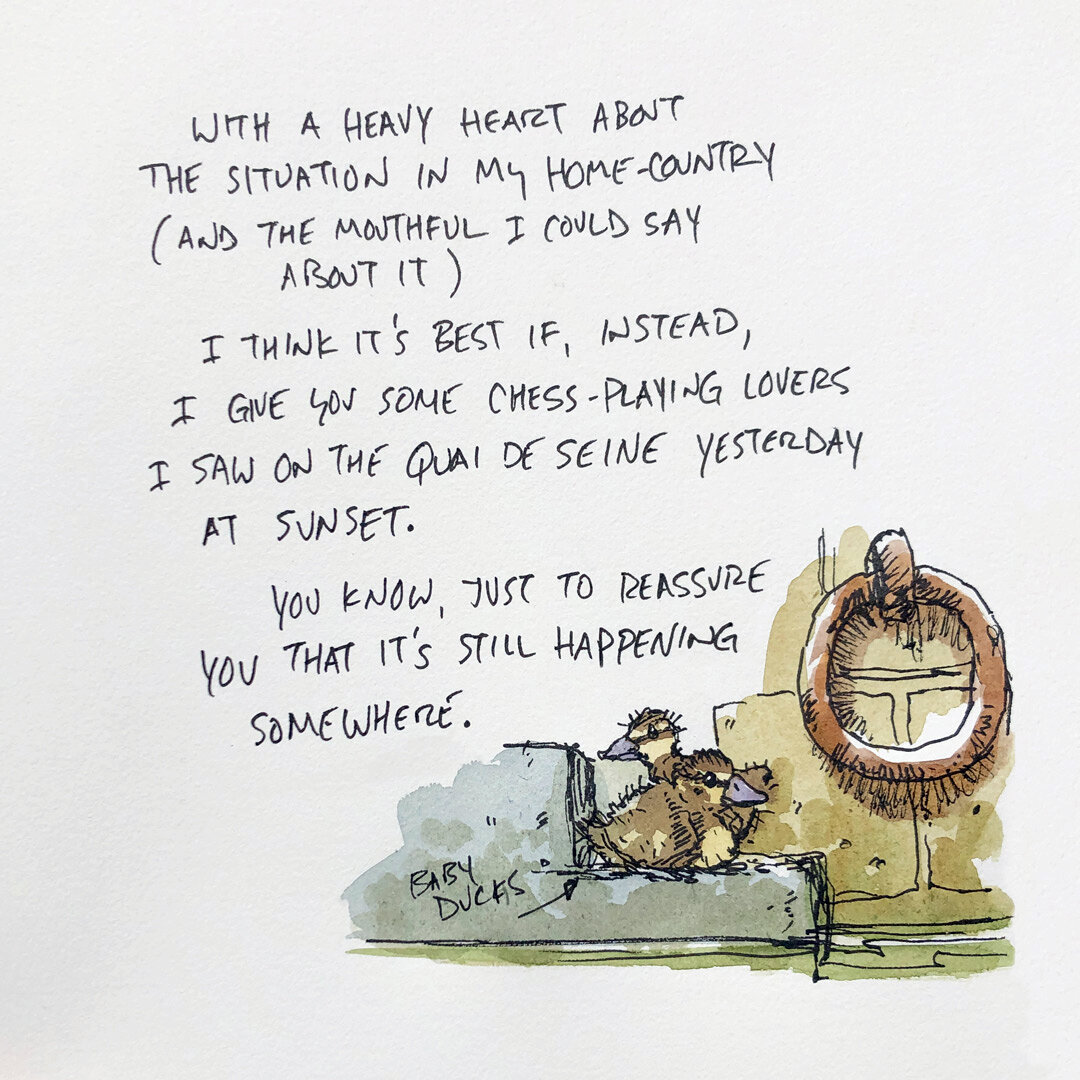 WITH A HEAVY HEART ABOUT
THE SITUATION IN MY HOME-COUNTRY
(AND THE MOUTHFUL I COULD SAY
ABOUT IT)
I THINK IT'S BEST IF, INSTEAD,
I GIVE YOU SOME CHESS-PLAYING LOVERS
I SAW ON THE QUAI DE SEINE YESTERDAY
AT SUNSET.
YOU KNOW, JUST TO REASSURE
YOU THAT IT'S STILL HAPPENING
SOMEWHERE.
BABY
DUCKS